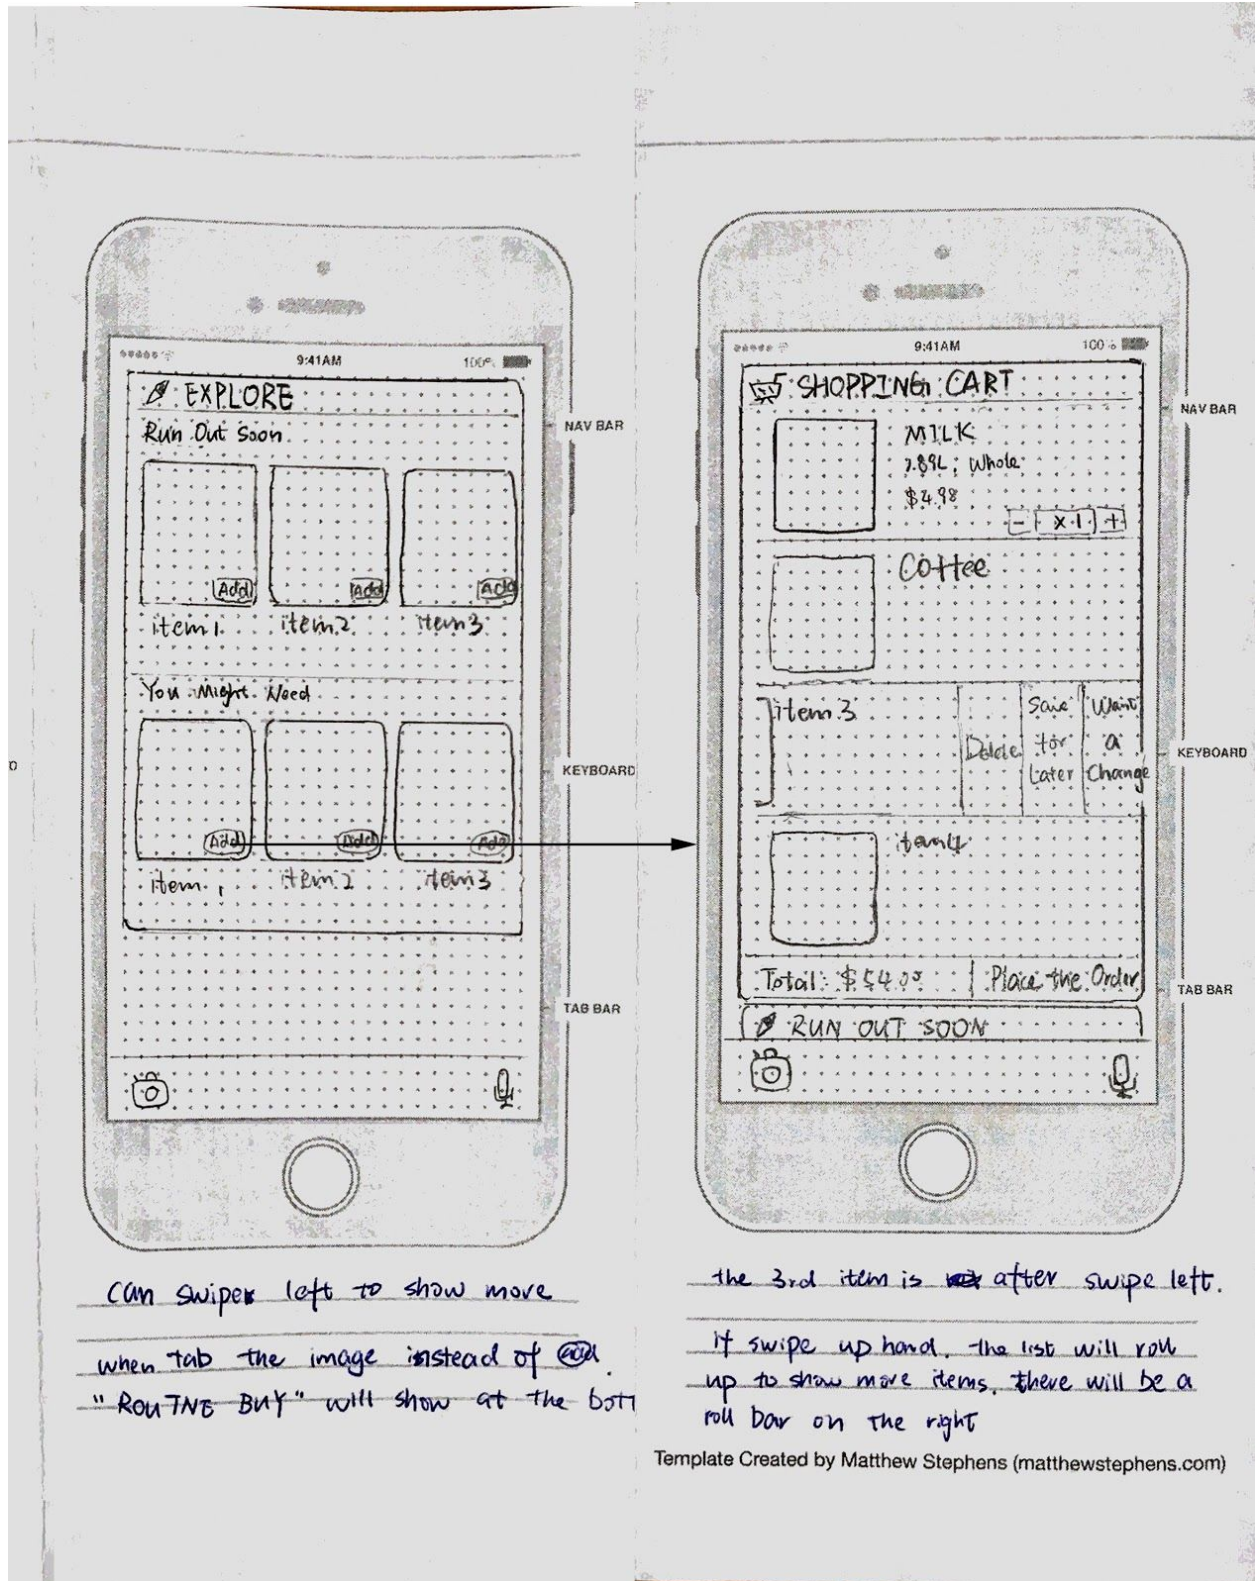 9:41AM
100%
EXPLORE
Run Out Soon
Add Add Add
item1 item2 item3
You Might Need
Add Add Add
item 1 item2 item3
NAV BAR
KEYBOARD
TAB BAR
can swipe left to show more
when tab the image instead of add
"ROUTNE BUY" will show at the bott
9:41AM
100%
SHOPPING CART
MILK
Whole
$4.98
- x1 +
Coffee
item3
Delete
Save for Later
Want a Change
item4
Total: $54.00
Place the Order
RUN OUT SOON
NAV BAR
KEYBOARD
TAB BAR
the 3rd item is after swipe left.
if swipe up hard, the list will roll
up to show more items. there will be a
roll bar on the right
Template Created by Matthew Stephens (matthewstephens.com)